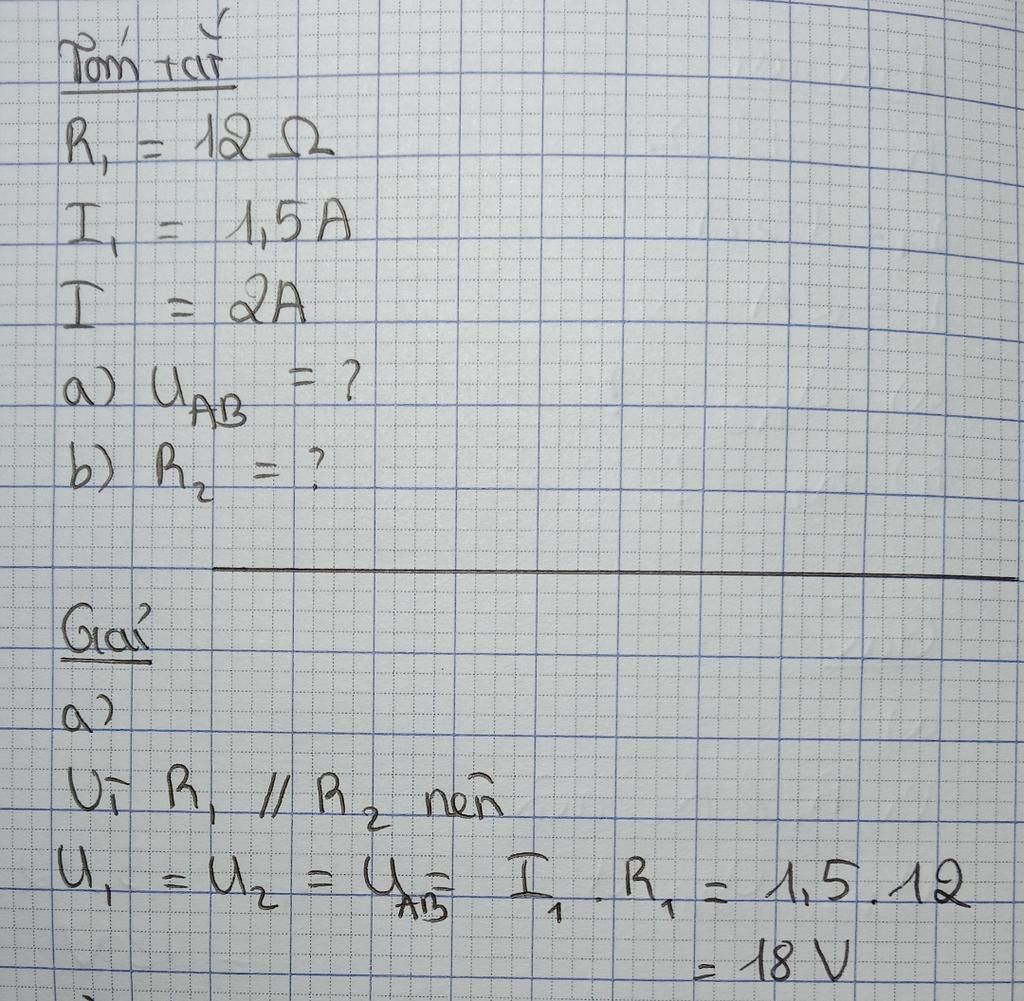 Tóm tắt
R₁ = 12 Ω
I₁ = 1,5A
I = 2A
a) U_AB = ?
b) R₂ = ?
Giải
a)
Vì R₁ // R₂ nên
U₁ = U₂ = U_AB = I₁ . R₁ = 1,5 . 12
= 18 V